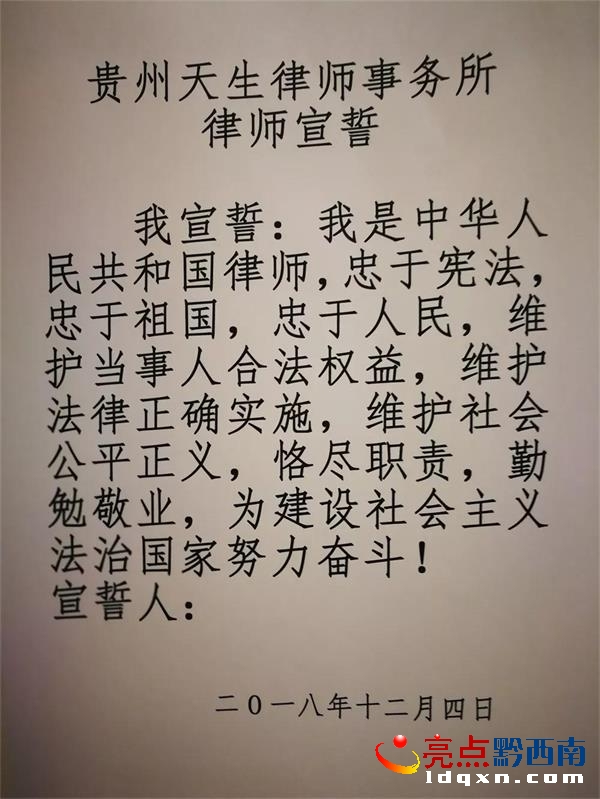 贵州天生律师事务所
律师宣誓
我宣誓：我是中华人
民共和国律师，忠于宪法，
忠于祖国，忠于人民，维
护当事人合法权益，维护
法律正确实施，维护社会
公平正义，恪尽职责，勤
勉敬业，为建设社会主义
法治国家努力奋斗！
宣誓人：
二0一八年十二月四日
亮点黔西南
ldqxn.com